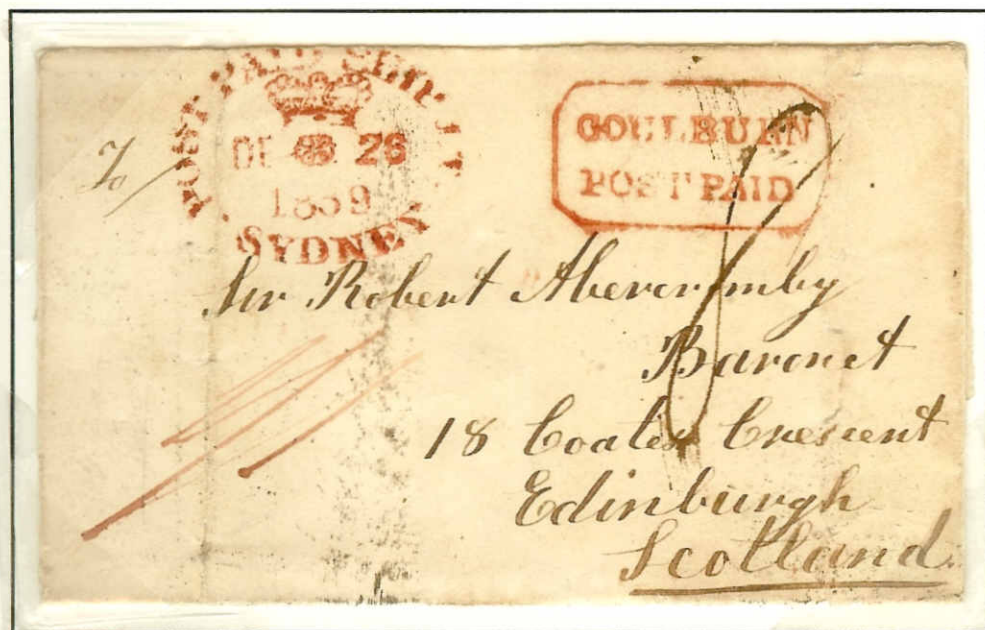 POST PAID SHIP LT
DE 28
1839
SYDNEY
GOULBURN
POST PAID
To
Sir Robert Abercromby
Baronet
18 Coates Crescent
Edinburgh
Scotland